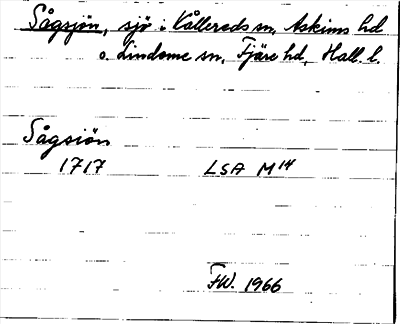 Sågsjön, sjö i Kållereds sn, Askims hd
o. Lindome sn, Fjäre hd, Hall. l.
Sågsiön
1717 LSA M14
FW. 1966